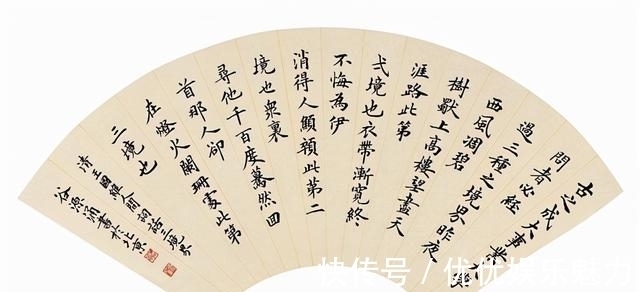 古之成大事業學
問者必經
過三種之境界昨夜
西風凋碧
樹獨上高樓望盡天
涯路此第
弌境也衣帶漸寬終
不悔為伊
消得人顦顇此第二
境也衆裏
尋他千百度驀然回
首那人卻
在燈火闌珊處此第
三境也
清王國維人間詞話三境界
谷源涌書於北京
快传号／优优娱乐魅力